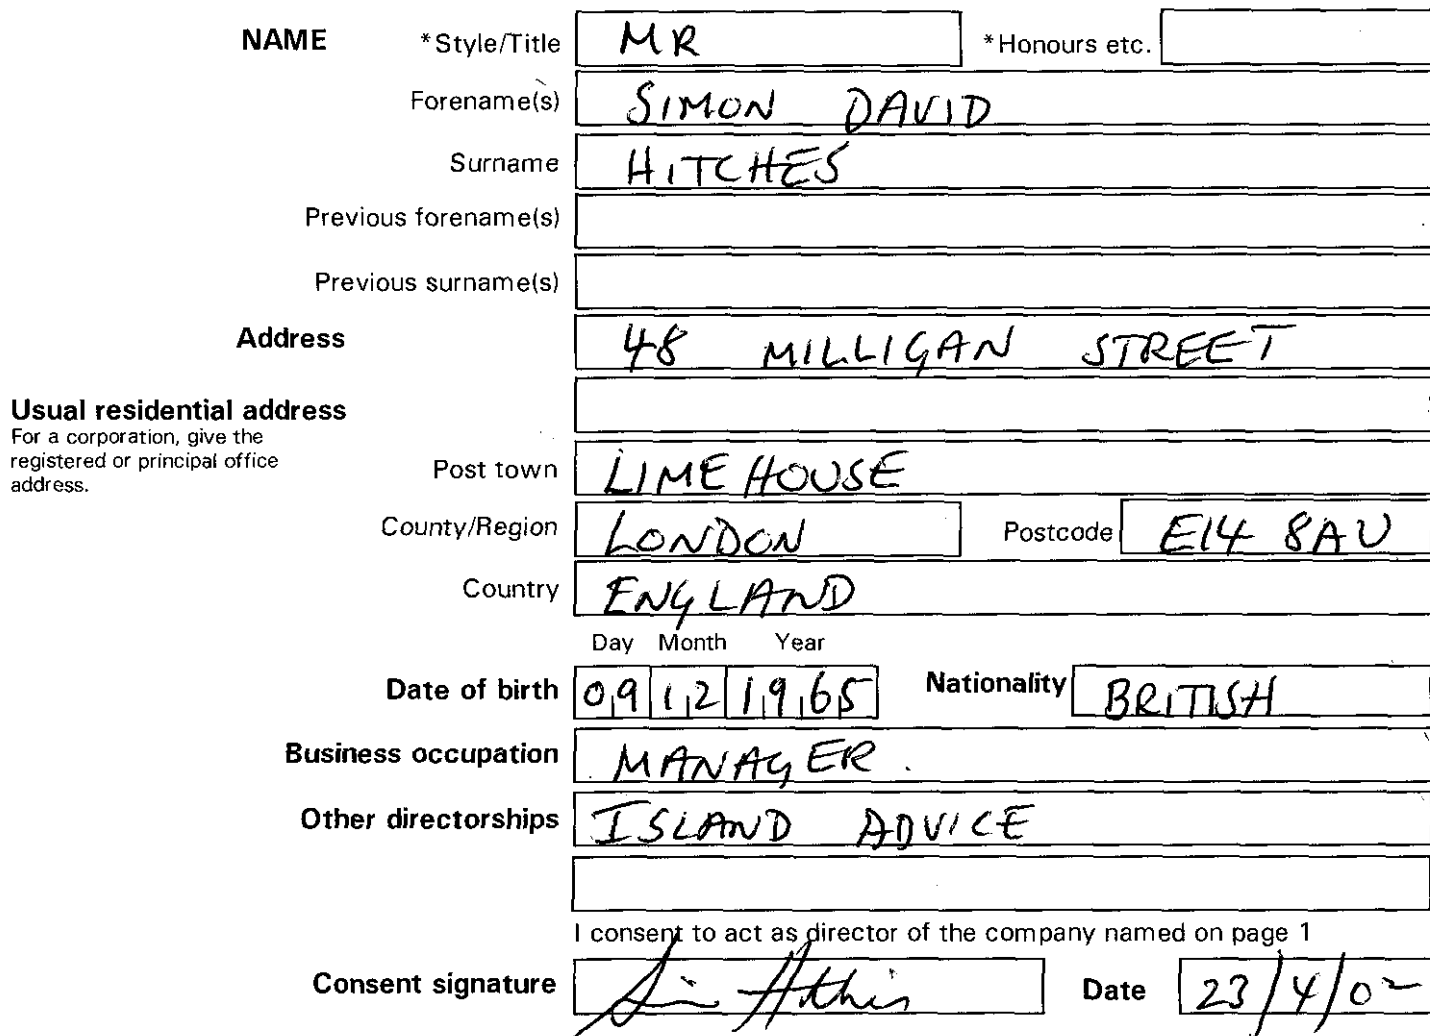 NAME *Style/Title MR *Honours etc.
Forename(s) SIMON DAVID
Surname HITCHES
Previous forename(s)
Previous surname(s)
Address 48 MILLIGAN STREET
Usual residential address
For a corporation, give the
registered or principal office
address.
Post town LIMEHOUSE
County/Region LONDON Postcode E14 8AU
Country ENGLAND
Day Month Year
Date of birth 09 12 1965 Nationality BRITISH
Business occupation MANAGER.
Other directorships ISLAND ADVICE
I consent to act as director of the company named on page 1
Consent signature Date 23/4/02